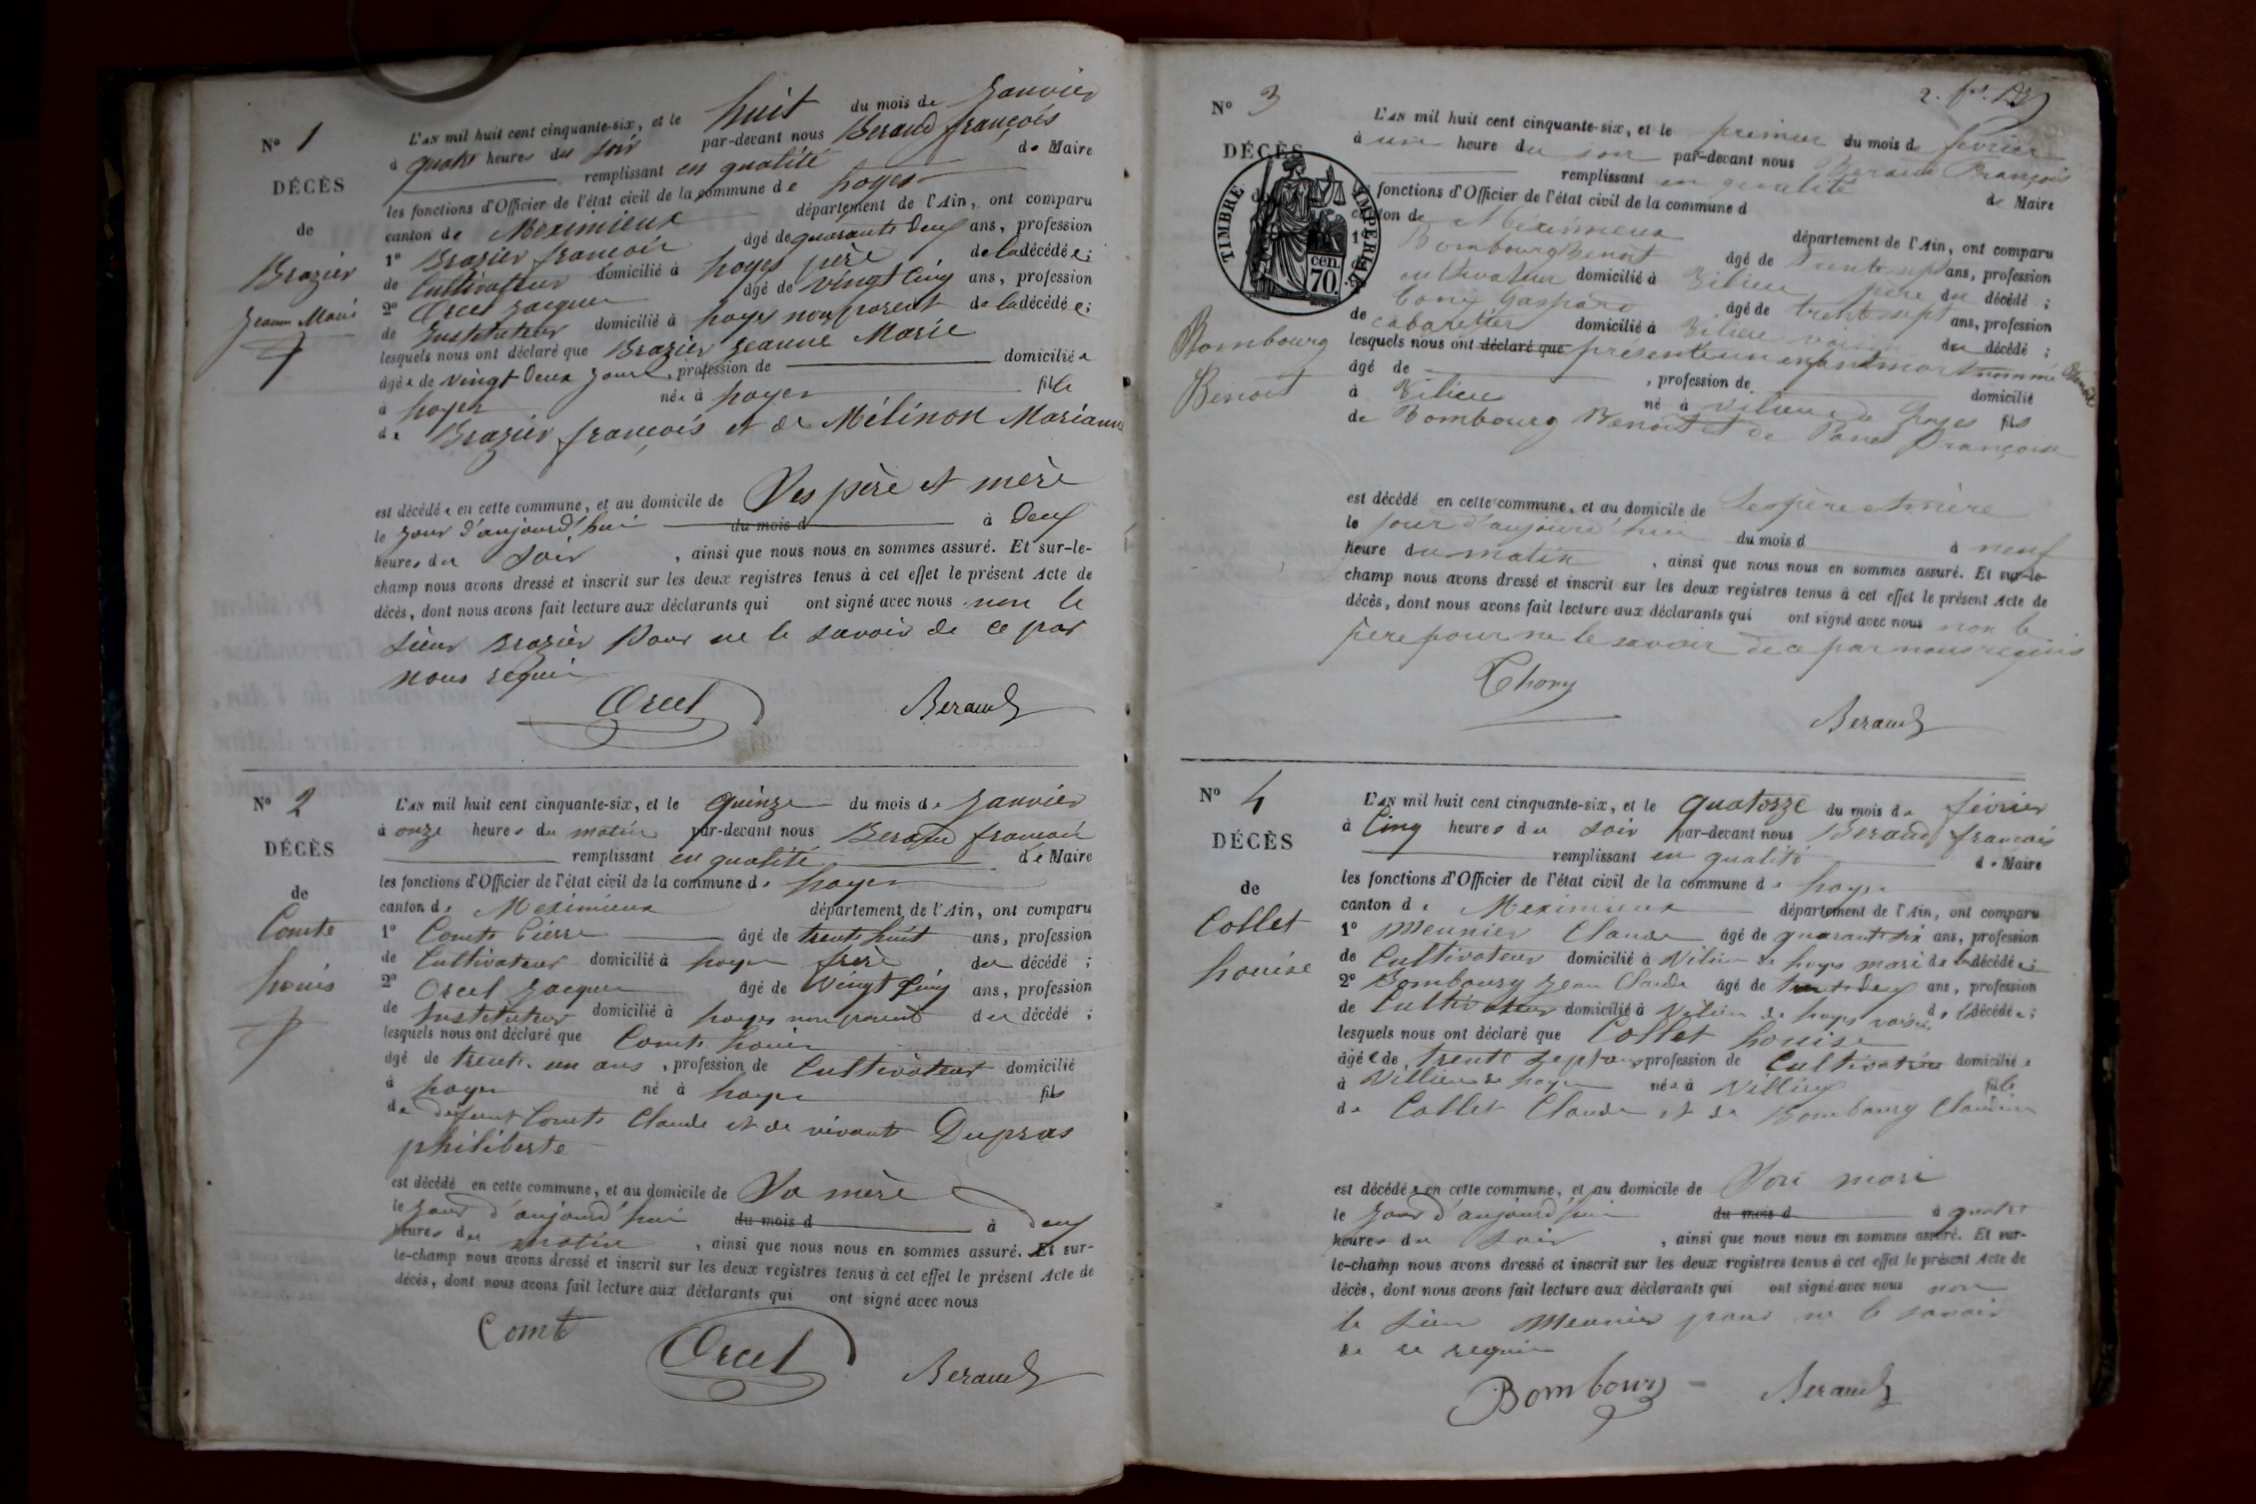 N° 1
DÉCÈS
de
Brazier
Jeanne Marie
L'AN mil huit cent cinquante-six, et le huit du mois de Janvier
à quatre heures du soir par-devant nous Beraud françois
remplissant en qualité de Maire
les fonctions d'Officier de l'état civil de la commune de Loyes
canton de Meximieux département de l'Ain, ont comparu
1° Brazier françois âgé de quarante deux ans, profession
de Cultivateur domicilié à Loyes père de la décédée;
2° Orcel Jacques âgé de vingt cinq ans, profession
de Instituteur domicilié à Loyes non parent de la décédée;
lesquels nous ont déclaré que Brazier Jeanne Marie
âgée de vingt deux jours, profession de domiciliée
à Loyes née à Loyes fille
de Brazier françois et de Mélinon Marianne
est décédée en cette commune, et au domicile de Ses père et mère
le jour d'aujourd'hui du mois d à deux
heures du soir, ainsi que nous nous en sommes assuré. Et sur-le-
champ nous avons dressé et inscrit sur les deux registres tenus à cet effet le présent Acte de
décès, dont nous avons fait lecture aux déclarants qui ont signé avec nous non le
sieur Brazier pour ne le savoir de ce par
nous requis
Orcel Beraud
N° 2
DÉCÈS
de
Comte
Louis
L'AN mil huit cent cinquante-six, et le quinze du mois de Janvier
à onze heures du matin par-devant nous Beraud françois
remplissant en qualité de Maire
les fonctions d'Officier de l'état civil de la commune de Loyes
canton de Meximieux département de l'Ain, ont comparu
1° Comte Pierre âgé de trente huit ans, profession
de Cultivateur domicilié à Loyes frere du décédé;
2° Orcel Jacques âgé de Vingt Cinq ans, profession
de Instituteur domicilié à Loyes non parent du décédé;
lesquels nous ont déclaré que Comte Louis
âgé de trente un ans, profession de Cultivateur domicilié
à Loyes né à Loyes fils
de defunt Comte Claude et de vivante Dupras
philiberte
est décédé en cette commune, et au domicile de Sa mère
le jour d'aujourd'hui du mois d à deux
heures du matin, ainsi que nous nous en sommes assuré. Et sur-
le-champ nous avons dressé et inscrit sur les deux registres tenus à cet effet le présent Acte de
décès, dont nous avons fait lecture aux déclarants qui ont signé avec nous
Comte Orcel Beraud
N° 3
DÉCÈS
TIMBRE IMPÉRIAL
cen.
70.
Bombourg
Benoit
L'AN mil huit cent cinquante-six, et le premier du mois de février
à une heure du soir par-devant nous Beraud François
remplissant en qualité de Maire
les fonctions d'Officier de l'état civil de la commune d
canton de Méximieux département de l'Ain, ont comparu
1° Bombourg Benoit âgé de trente sept ans, profession
cultivateur domicilié à Vilieu père du décédé;
Gaspard âgé de trente sept ans, profession
de cabaretier domicilié à Vilieu voisin du décédé;
lesquels nous ont déclaré que présenté un enfant mort nommé Benoit
âgé de , profession de domicilié
à Vilieu né à Vilieu de Loyes fils
de Bombourg Benoit et de Françoise
est décédé en cette commune, et au domicile de Ses père et mère
le jour d'aujourd'hui du mois d à neuf
heure du matin, ainsi que nous nous en sommes assuré. Et sur-le-
champ nous avons dressé et inscrit sur les deux registres tenus à cet effet le présent Acte de
décès, dont nous avons fait lecture aux déclarants qui ont signé avec nous non le
père pour ne le savoir de ce par nous requis
Thony
Beraud
N° 4
DÉCÈS
de
Collet
Louise
L'AN mil huit cent cinquante-six, et le quatorze du mois de février
à Cinq heures du soir par-devant nous Beraud françois
remplissant en qualité de Maire
les fonctions d'Officier de l'état civil de la commune de Loyes
canton de Meximieux département de l'Ain, ont comparu
1° Meunier Claude âgé de quarante six ans, profession
de Cultivateur domicilié à Vilieu de Loyes mari de la décédée;
2° Bombourg Jean Claude âgé de trente deux ans, profession
de Cultivateur domicilié à Vilieu de Loyes voisin de la décédée;
lesquels nous ont déclaré que Collet Louise
âgée de trente sept ans, profession de Cultivatrice domiciliée
à Villieu de Loyes née à Villieu fille
de Collet Claude et de Bombourg Claudine
est décédée en cette commune, et au domicile de Son mari
le jour d'aujourd'hui du mois d à quatre
heures du soir, ainsi que nous nous en sommes assuré. Et sur-
le-champ nous avons dressé et inscrit sur les deux registres tenus à cet effet le présent Acte de
décès, dont nous avons fait lecture aux déclarants qui ont signé avec nous non
le sieur Meunier pour ne le savoir
de ce requis
Bombourg Beraud